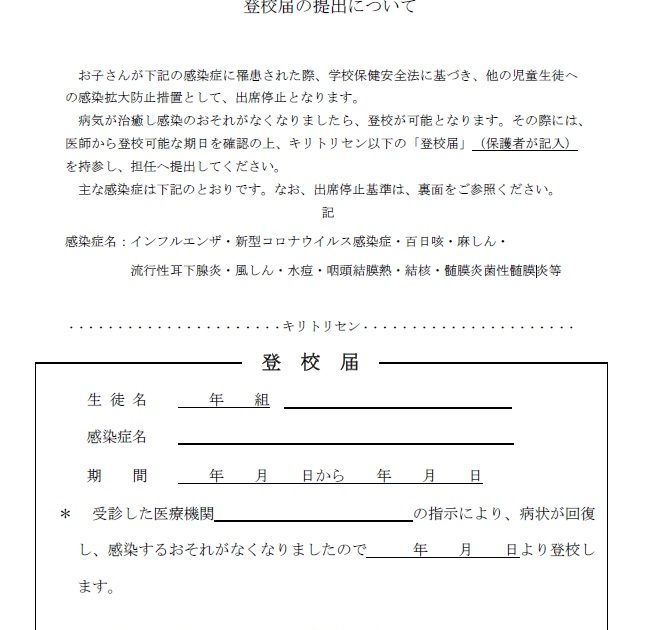 登校届の提出について
お子さんが下記の感染症に罹患された際、学校保健安全法に基づき、他の児童生徒へ
の感染拡大防止措置として、出席停止となります。
病気が治癒し感染のおそれがなくなりましたら、登校が可能となります。その際には、
医師から登校可能な期日を確認の上、キリトリセン以下の「登校届」（保護者が記入）
を持参し、担任へ提出してください。
主な感染症は下記のとおりです。なお、出席停止基準は、裏面をご参照ください。
記
感染症名：インフルエンザ・新型コロナウイルス感染症・百日咳・麻しん・
流行性耳下腺炎・風しん・水痘・咽頭結膜熱・結核・髄膜炎菌性髄膜炎等
・・・・・・・・・・・・・・・・・・・・・・キリトリセン・・・・・・・・・・・・・・・・・・・・・・
登 校 届
生 徒 名 　　年　　組
感染症名
期　　間 　　年　　月　　日から　　年　　月　　日
＊　受診した医療機関　　　　　　　　　　　　　の指示により、病状が回復
し、感染するおそれがなくなりましたので　　　年　　月　　日より登校し
ます。